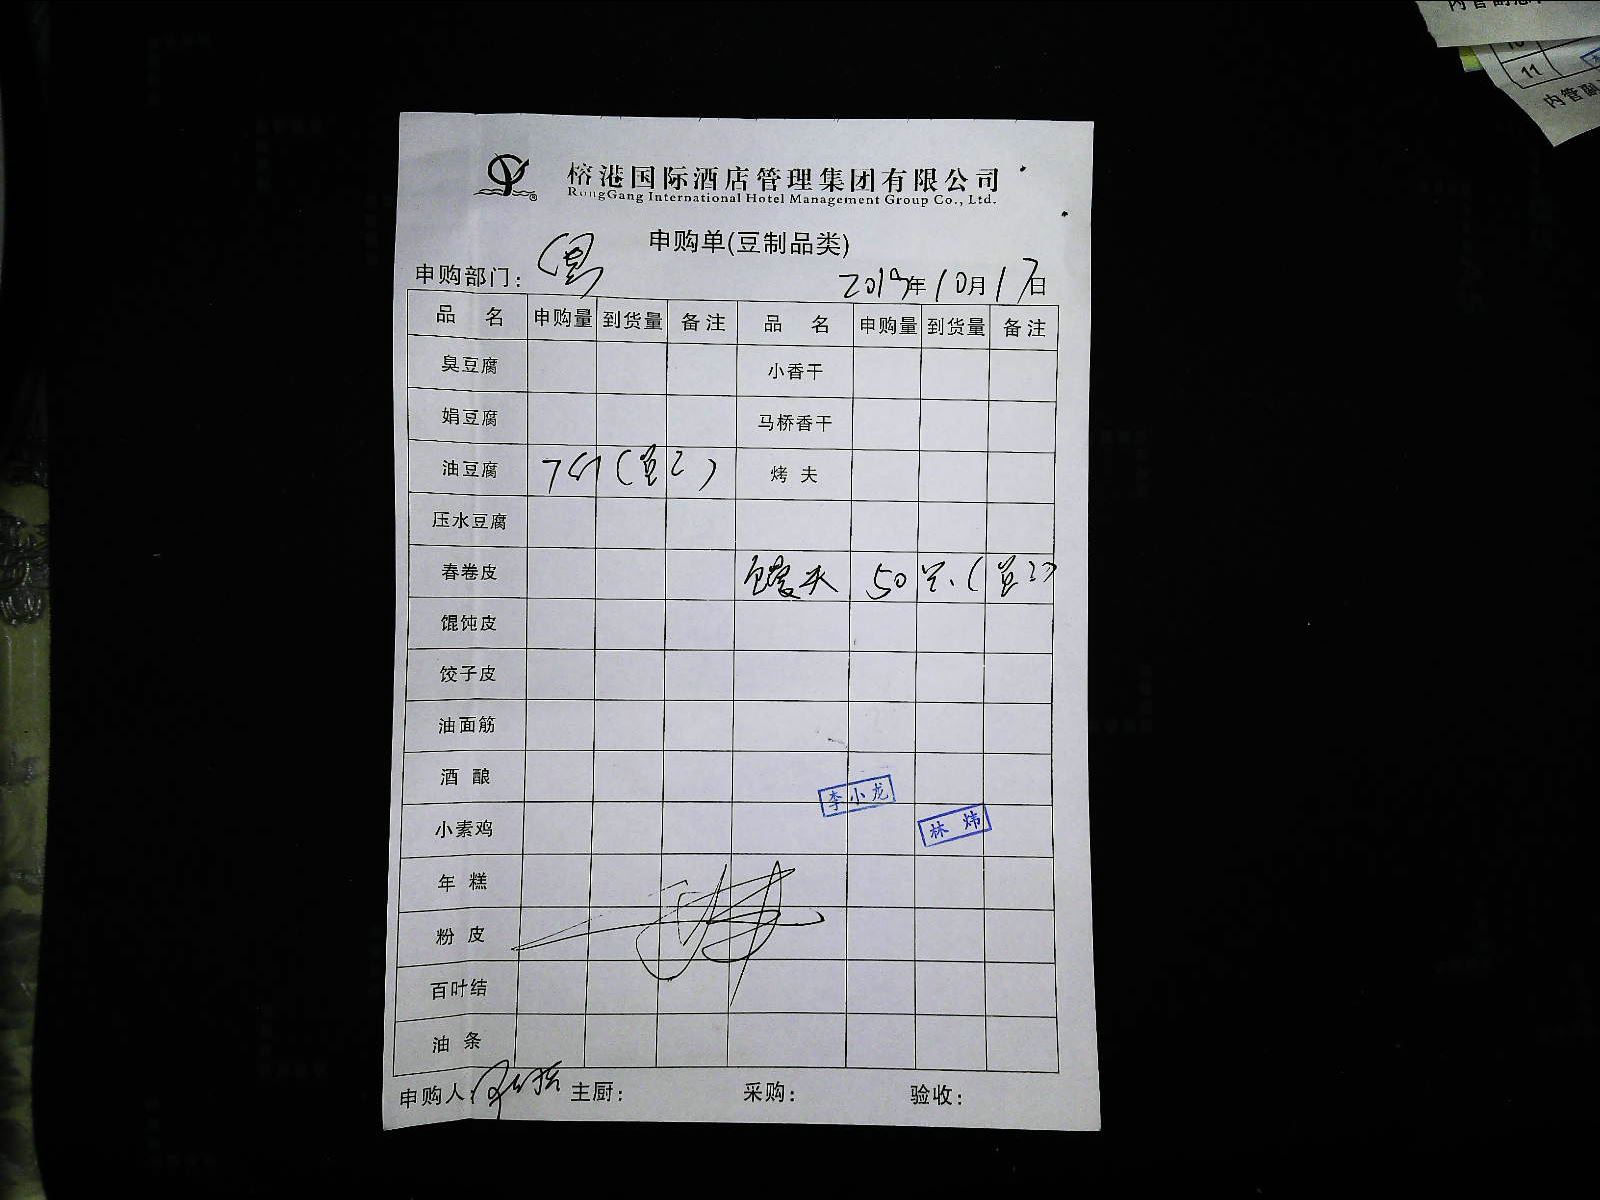 榕港国际酒店管理集团有限公司
RongGang International Hotel Management Group Co., Ltd.
申购单(豆制品类)
申购部门:
2019年10月17日
品 名 申购量 到货量 备注 品 名 申购量 到货量 备注
臭豆腐 小香干
娟豆腐 马桥香干
油豆腐 烤 夫
压水豆腐
春卷皮 50
馄饨皮
饺子皮
油面筋
酒 酿
李小龙
小素鸡
林 炜
年 糕
粉 皮
百叶结
油 条
申购人: 主厨: 采购: 验收:
11
内管副